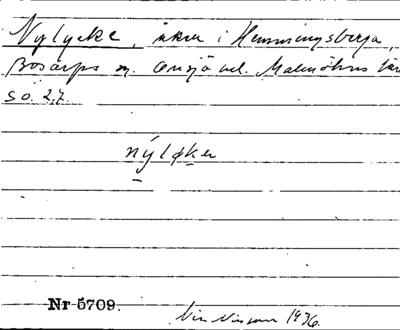 Nylycke, åkrar i Henningsberga,
Bosarps sn. Onsjö hd. Malmöhus län
SO. 27.
nýløkɐ
Nr 5709.
1936.